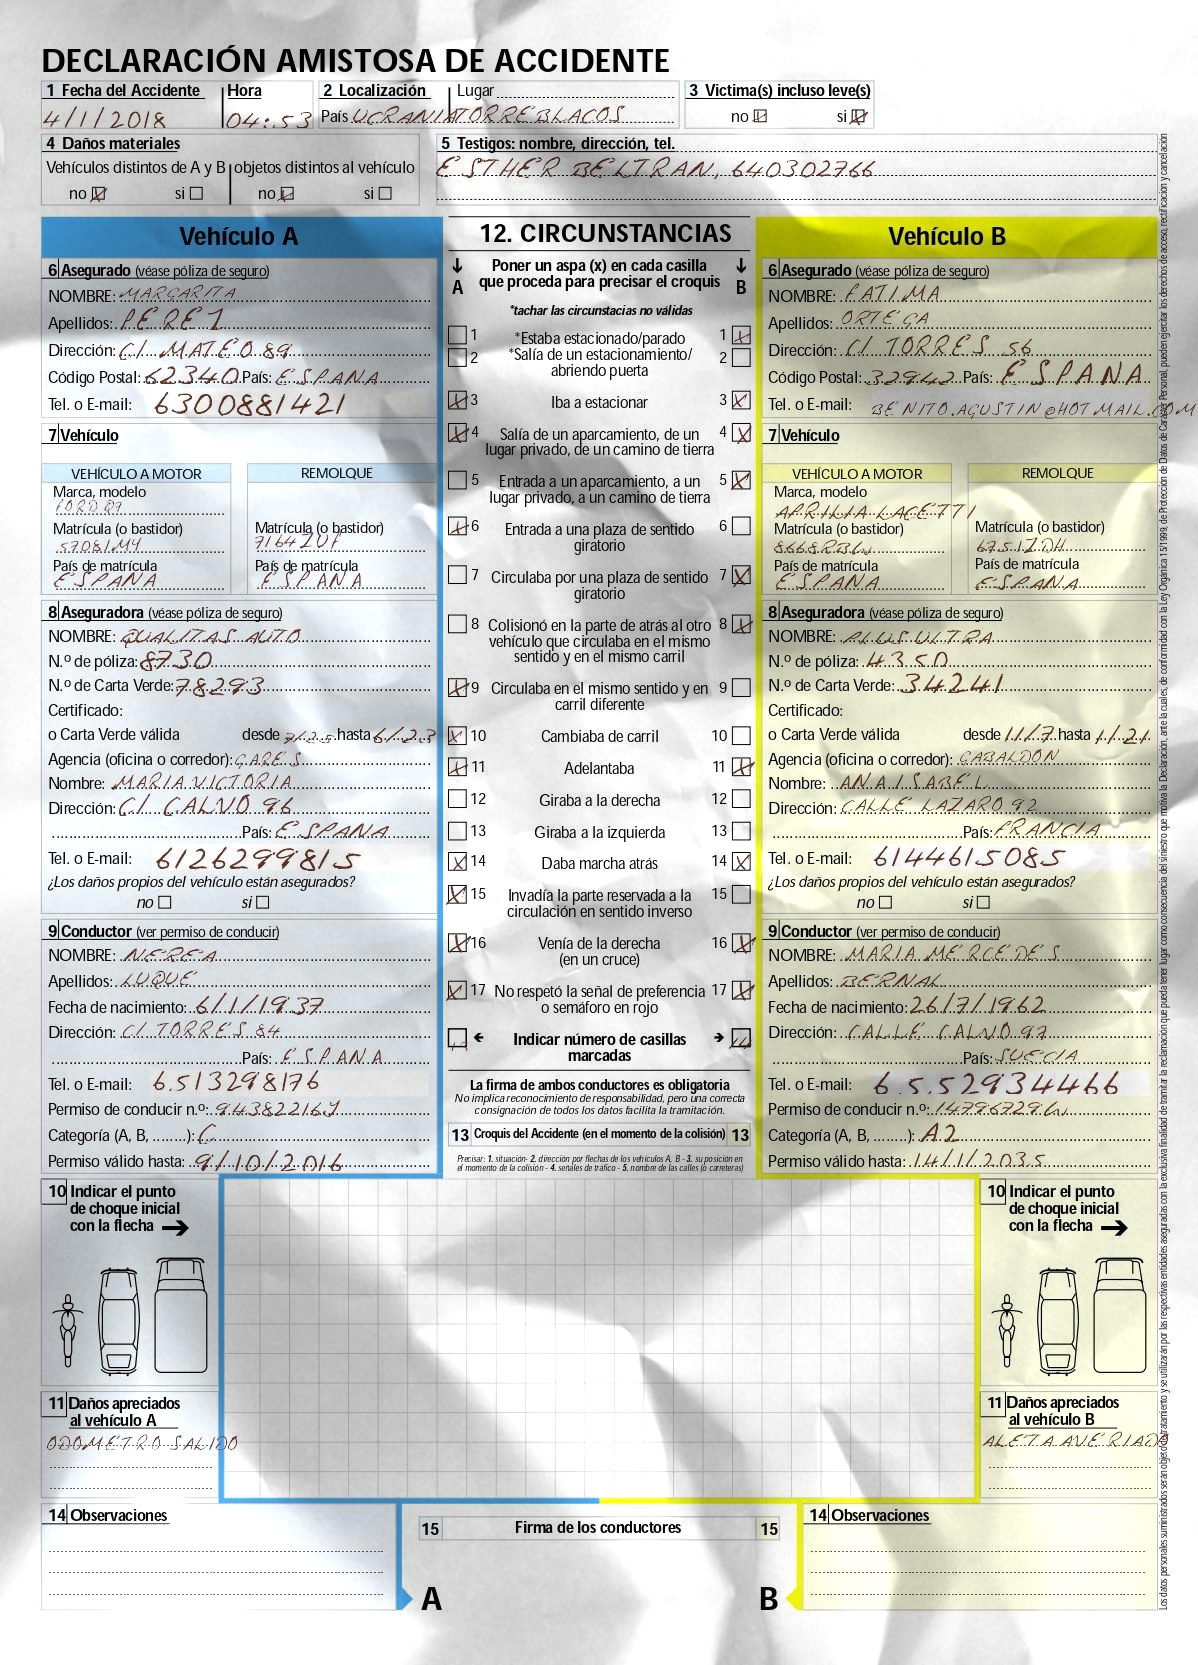 DECLARACIÓN AMISTOSA DE ACCIDENTE
1 Fecha del Accidente Hora 2 Localización Lugar 3 Victima(s) incluso leve(s)
4/1/2018 04:53 País UCRANIA TORREBLACOS no si
4 Daños materiales
Vehículos distintos de A y B objetos distintos al vehículo
no si no si
5 Testigos: nombre, dirección, tel.
ESTHER BELTRAN, 640302766
Vehículo A
6 Asegurado (véase póliza de seguro)
NOMBRE: MARGARITA
Apellidos: PEREZ
Dirección: C/ MATEO 89
Código Postal: 62340 País: ESPANA
Tel. o E-mail: 6300881421
7 Vehículo
VEHÍCULO A MOTOR REMOLQUE
Marca, modelo
FORD Q7
Matrícula (o bastidor) Matrícula (o bastidor)
5708IMY 7164ZUF
País de matrícula País de matrícula
ESPANA ESPANA
8 Aseguradora (véase póliza de seguro)
NOMBRE: QUALITAS AUTO
N.º de póliza: 8730
N.º de Carta Verde: 78293
Certificado:
o Carta Verde válida desde 7/2.5 hasta 6/.2.3
Agencia (oficina o corredor): GARES
Nombre: MARIA VICTORIA
Dirección: C/ CALVO 96
País: ESPANA
Tel. o E-mail: 6126299815
¿Los daños propios del vehículo están asegurados?
no si
9 Conductor (ver permiso de conducir)
NOMBRE: NEREA
Apellidos: LUQUE
Fecha de nacimiento: 6/1/1937
Dirección: C/ TORRES 84
País: ESPANA
Tel. o E-mail: 6.513298176
Permiso de conducir n.º: 94382216J
Categoría (A, B, ........): C
Permiso válido hasta: 9/10/2016
12. CIRCUNSTANCIAS
A Poner un aspa (x) en cada casilla B
que proceda para precisar el croquis
*tachar las circunstacias no válidas
1 *Estaba estacionado/parado 1
2 *Salía de un estacionamiento/ 2
abriendo puerta
3 Iba a estacionar 3
4 Salía de un aparcamiento, de un 4
lugar privado, de un camino de tierra
5 Entrada a un aparcamiento, a un 5
lugar privado, a un camino de tierra
6 Entrada a una plaza de sentido 6
giratorio
7 Circulaba por una plaza de sentido 7
giratorio
8 Colisionó en la parte de atrás al otro 8
vehículo que circulaba en el mismo
sentido y en el mismo carril
9 Circulaba en el mismo sentido y en 9
carril diferente
10 Cambiaba de carril 10
11 Adelantaba 11
12 Giraba a la derecha 12
13 Giraba a la izquierda 13
14 Daba marcha atrás 14
15 Invadía la parte reservada a la 15
circulación en sentido inverso
16 Venía de la derecha 16
(en un cruce)
17 No respetó la señal de preferencia 17
o semáforo en rojo
Indicar número de casillas
marcadas
La firma de ambos conductores es obligatoria
No implica reconocimiento de responsabilidad, pero una correcta
consignación de todos los datos facilita la tramitación.
13 Croquis del Accidente (en el momento de la colisión) 13
Precisar: 1. situación- 2. dirección por flechas de los vehículos A, B - 3. su posición en
el momento de la colisión - 4. señales de tráfico - 5. nombre de las calles (o carreteras)
Vehículo B
6 Asegurado (véase póliza de seguro)
NOMBRE: FATIMA
Apellidos: ORTEGA
Dirección: C/ TORRES 56
Código Postal: 32942 País: ESPANA
Tel. o E-mail: BENITO.AGUSTIN@HOTMAIL.COM
7 Vehículo
VEHÍCULO A MOTOR REMOLQUE
Marca, modelo
APRILIA LACETTI
Matrícula (o bastidor) Matrícula (o bastidor)
8668RBW 6751ZDH
País de matrícula País de matrícula
ESPANA ESPANA
8 Aseguradora (véase póliza de seguro)
NOMBRE: PLUS ULTRA
N.º de póliza: 4350
N.º de Carta Verde: 34241
Certificado:
o Carta Verde válida desde 11/7 hasta 1/.21
Agencia (oficina o corredor): GABALDON
Nombre: ANA ISABEL
Dirección: CALLE LAZARO 92
País: FRANCIA
Tel. o E-mail: 6144615085
¿Los daños propios del vehículo están asegurados?
no si
9 Conductor (ver permiso de conducir)
NOMBRE: MARIA MERCEDES
Apellidos: BERNAL
Fecha de nacimiento: 26/7/1962
Dirección: CALLE CALVO 97
País: SUECIA
Tel. o E-mail: 6.5.52934466
Permiso de conducir n.º: 14796729W
Categoría (A, B, ........): A2
Permiso válido hasta: 14/1/2035
10 Indicar el punto
de choque inicial
con la flecha
11 Daños apreciados
al vehículo A
ODOMETRO SALIDO
10 Indicar el punto
de choque inicial
con la flecha
11 Daños apreciados
al vehículo B
ALETA AVERIADA
14 Observaciones
15 Firma de los conductores 15
A B
14 Observaciones
Los datos personales suministrados serán objeto de tratamiento y se utilizarán por las respectivas entidades aseguradas con la exclusiva finalidad de tramitar la reclamación que pueda tener lugar como consecuencia del siniestro que motiva la Declaración, ante la cuales, de conformidad con la Ley Orgánica 15/1999, de Protección de Datos de Carácter Personal, pueden ejercitar los derechos de acceso, rectificación y cancelación